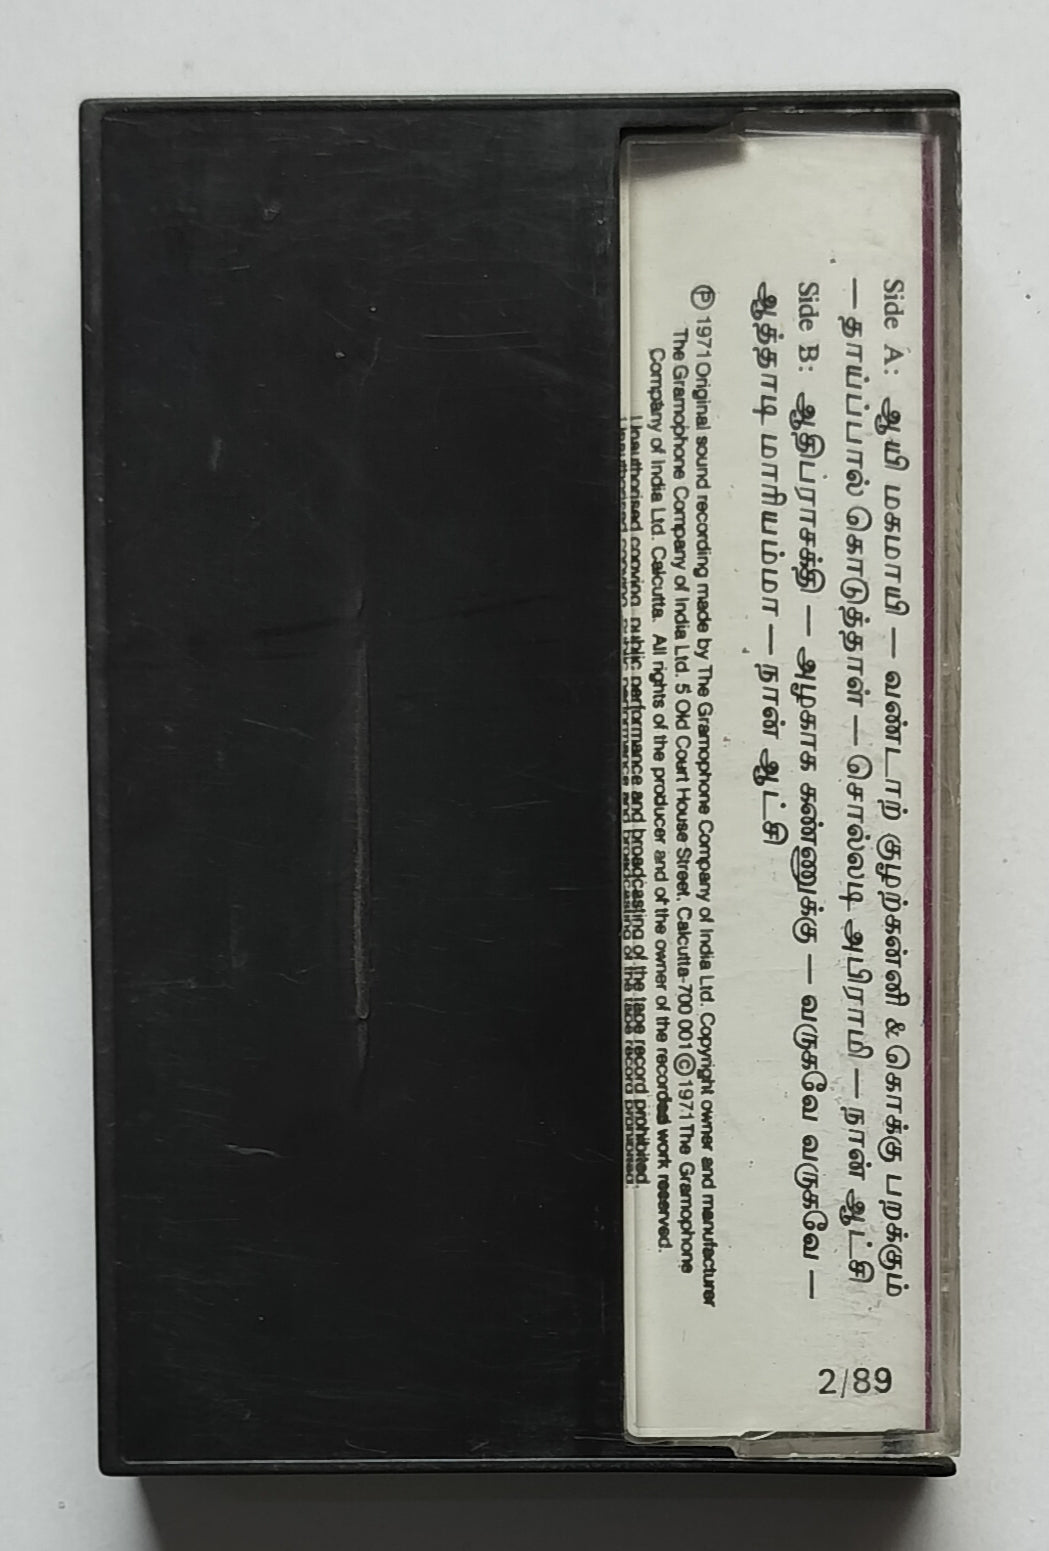 Side A: ஆயி மகமாயி — வண்டார் குழற்கன்னி & கொக்கு பறக்கும்
— தாய்ப்பால் கொடுத்தாள் — சொல்லடி அபிராமி — நான் ஆட்சி
Side B: ஆதிப்ராசக்தி — அழகாக கண்ணுக்கு — வருகவே வருகவே —
ஆத்தாடி மாரியம்மா — நான் ஆட்சி
Ⓟ 1971 Original sound recording made by The Gramophone Company of India Ltd. Copyright owner and manufacturer
The Gramophone Company of India Ltd. 5 Old Court House Street. Calcutta-700 001 © 1971 The Gramophone
Company of India Ltd. Calcutta. All rights of the producer and of the owner of the recorded work reserved.
Unauthorised copying public performance and broadcasting of the tape record prohibited.
2/89